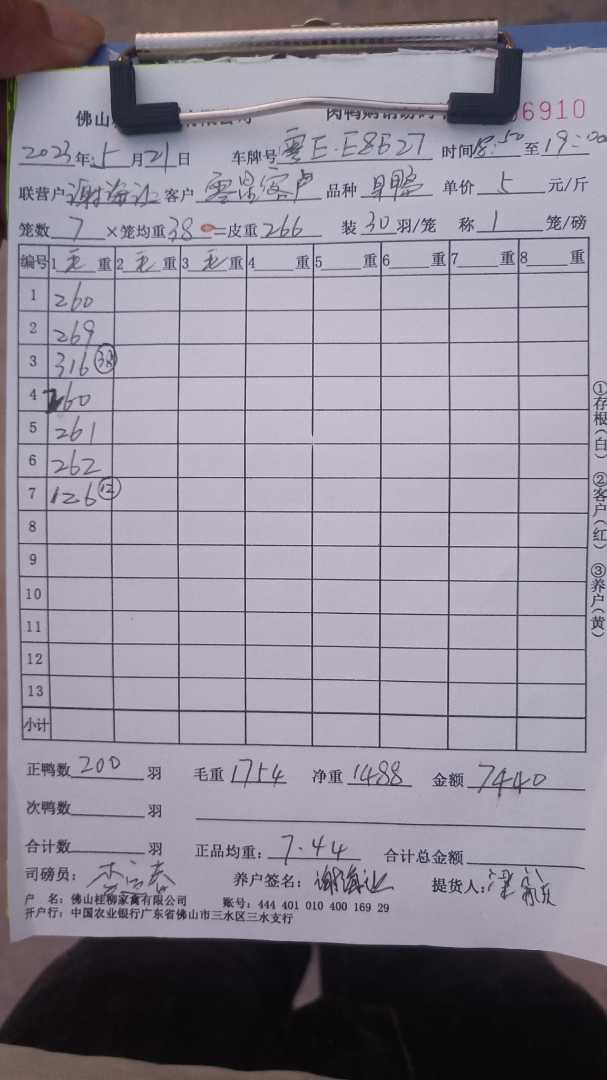 佛山
6910
2023年5月21日 车牌号 粤E·E8627 时间 8:50 至 19:00
联营户 谢海让 客户 品种 单价 5 元/斤
笼数 7 ×笼均重 38 =皮重 266 装 30 羽/笼 称 1 笼/磅
编号 1 毛 重 2 毛 重 3 毛 重 4 重 5 重 6 重 7 重 8 重
1 260
2 269
3 316 (38)
4 260
5 261
6 262
7 126 (12)
8
9
10
11
12
13
小计
①存根(白) ②客户(红) ③养户(黄)
正鸭数 200 羽 毛重 1754 净重 1488 金额 7440
次鸭数 羽
合计数 羽 正品均重: 7.44 合计总金额
司磅员: 养户签名: 提货人:
户 名: 佛山桂柳家禽有限公司 账号: 444 401 010 400 169 29
开户行: 中国农业银行广东省佛山市三水区三水支行